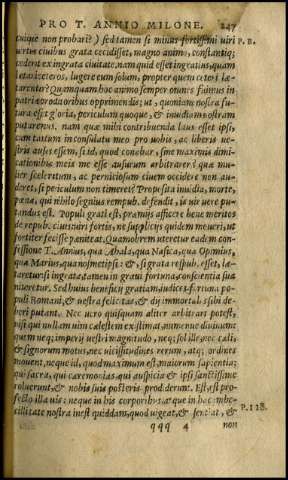 PRO T. ANNIO MILONE. 247
cuique non probari?) sed tamen si minus fortissimi uiri P. B.
uirtus ciuibus grata cecidisset, magno animo, constantiq;
cederet ex ingrata ciuitate. nam quid esset ingratius, quam
lætari ceteros, lugere eum solum, propter quem ceteri læ-
tarentur? Quanquam hoc animo semper omnes fuimus in
patriæ proditoribus opprimendis; ut, quoniam nostra fu-
tura esset gloria, periculum quoque, & inuidiam nostram
putaremus. nam quæ mihi tribuenda laus esset ipsi,
cum tantum in consulatu meo pro uobis, ac liberis ue-
stris ausus essem, si id, quod conabar, sine maximis dimi-
cationibus meis me esse ausurum arbitrarer? quæ mu-
lier sceleratum, ac perniciosum ciuem occidere non au-
deret, si periculum non timeret? Proposita inuidia, morte,
pœna, qui nihilo segnius rempub. defendit, is uir uere pu-
tandus est. Populi grati est, præmijs afficere bene meritos
de repub. ciues: uiri fortis, ne supplicijs quidem moueri, ut
fortiter fecisse pœniteat. Quamobrem uteretur eadem con-
fessione T. Annius, qua Ahala, qua Nasica, qua Opimius,
qua Marius, qua nosmetipsi: &, si grata respub. esset, læ-
taretur: si ingrata, tamen in graui fortuna, conscientia sua
niteretur. Sed huius beneficij gratiam, iudices, fortuna po-
puli Romani, & uestra felicitas, & dij immortales sibi de-
beri putant. Nec uero quisquam aliter arbitrari potest,
nisi qui nullam uim cælestem existimat, numenue diuinum:
quem neq; imperij uestri magnitudo, neq; sol ille, nec cæli,
& signorum motus, nec uicissitudines rerum, atq; ordines
mouent, neque id, quod maximum est, maiorum sapientia;
qui sacra, qui cæremonias, qui auspicia & ipsi sanctissime
coluerunt, & nobis suis posteris prodiderunt. Est, est pro-
fecto illa uis: neque in his corporibus, atque in hac imbe-
cillitate nostra inest quiddam, quod uigeat, & sentiat, & P. 118.
qqq 4 non